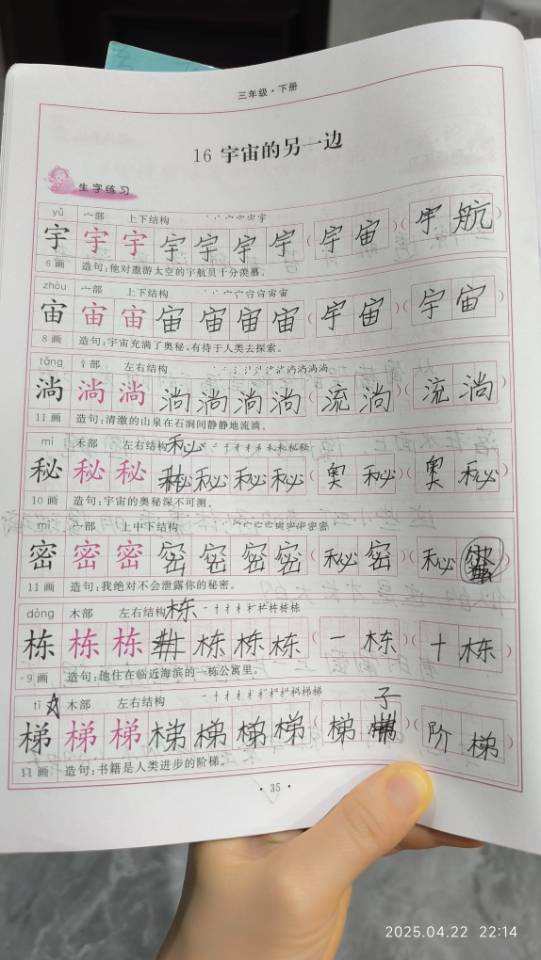 三年级·下册
16 宇宙的另一边
生字练习
yǔ 宀部 上下结构
宇 宇 宇 宇 宇 宇 宇 (宇 宙)(宇 航)
6画 造句:他对遨游太空的宇航员十分羡慕。
zhòu 宀部 上下结构
宙 宙 宙 宙 宙 宙 宙 (宇 宙)(宇 宙)
8画 造句:宇宙充满了奥秘,有待于人类去探索。
tǎng 氵部 左右结构
淌 淌 淌 淌 淌 淌 淌 (流 淌)(流 淌)
11画 造句:清澈的山泉在石涧间静静地流淌。
mì 木部 左右结构 秘
秘 秘 秘 秘 秘 秘 (奥 秘)(奥 秘)
10画 造句:宇宙的奥秘深不可测。
mì 宀部 上中下结构
密 密 密 密 密 密 密 (秘 密)(秘 蜜)
11画 造句:我绝对不会泄露你的秘密。
dòng 木部 左右结构 栋
栋 栋 栋 栋 栋 栋 (一 栋)(十 栋)
9画 造句:他住在临近海滨的一栋公寓里。
tī 木部 左右结构 子
梯 梯 梯 梯 梯 梯 梯 (梯)(阶 梯)
11画 造句:书籍是人类进步的阶梯。
·35·
2025.04.22 22:14